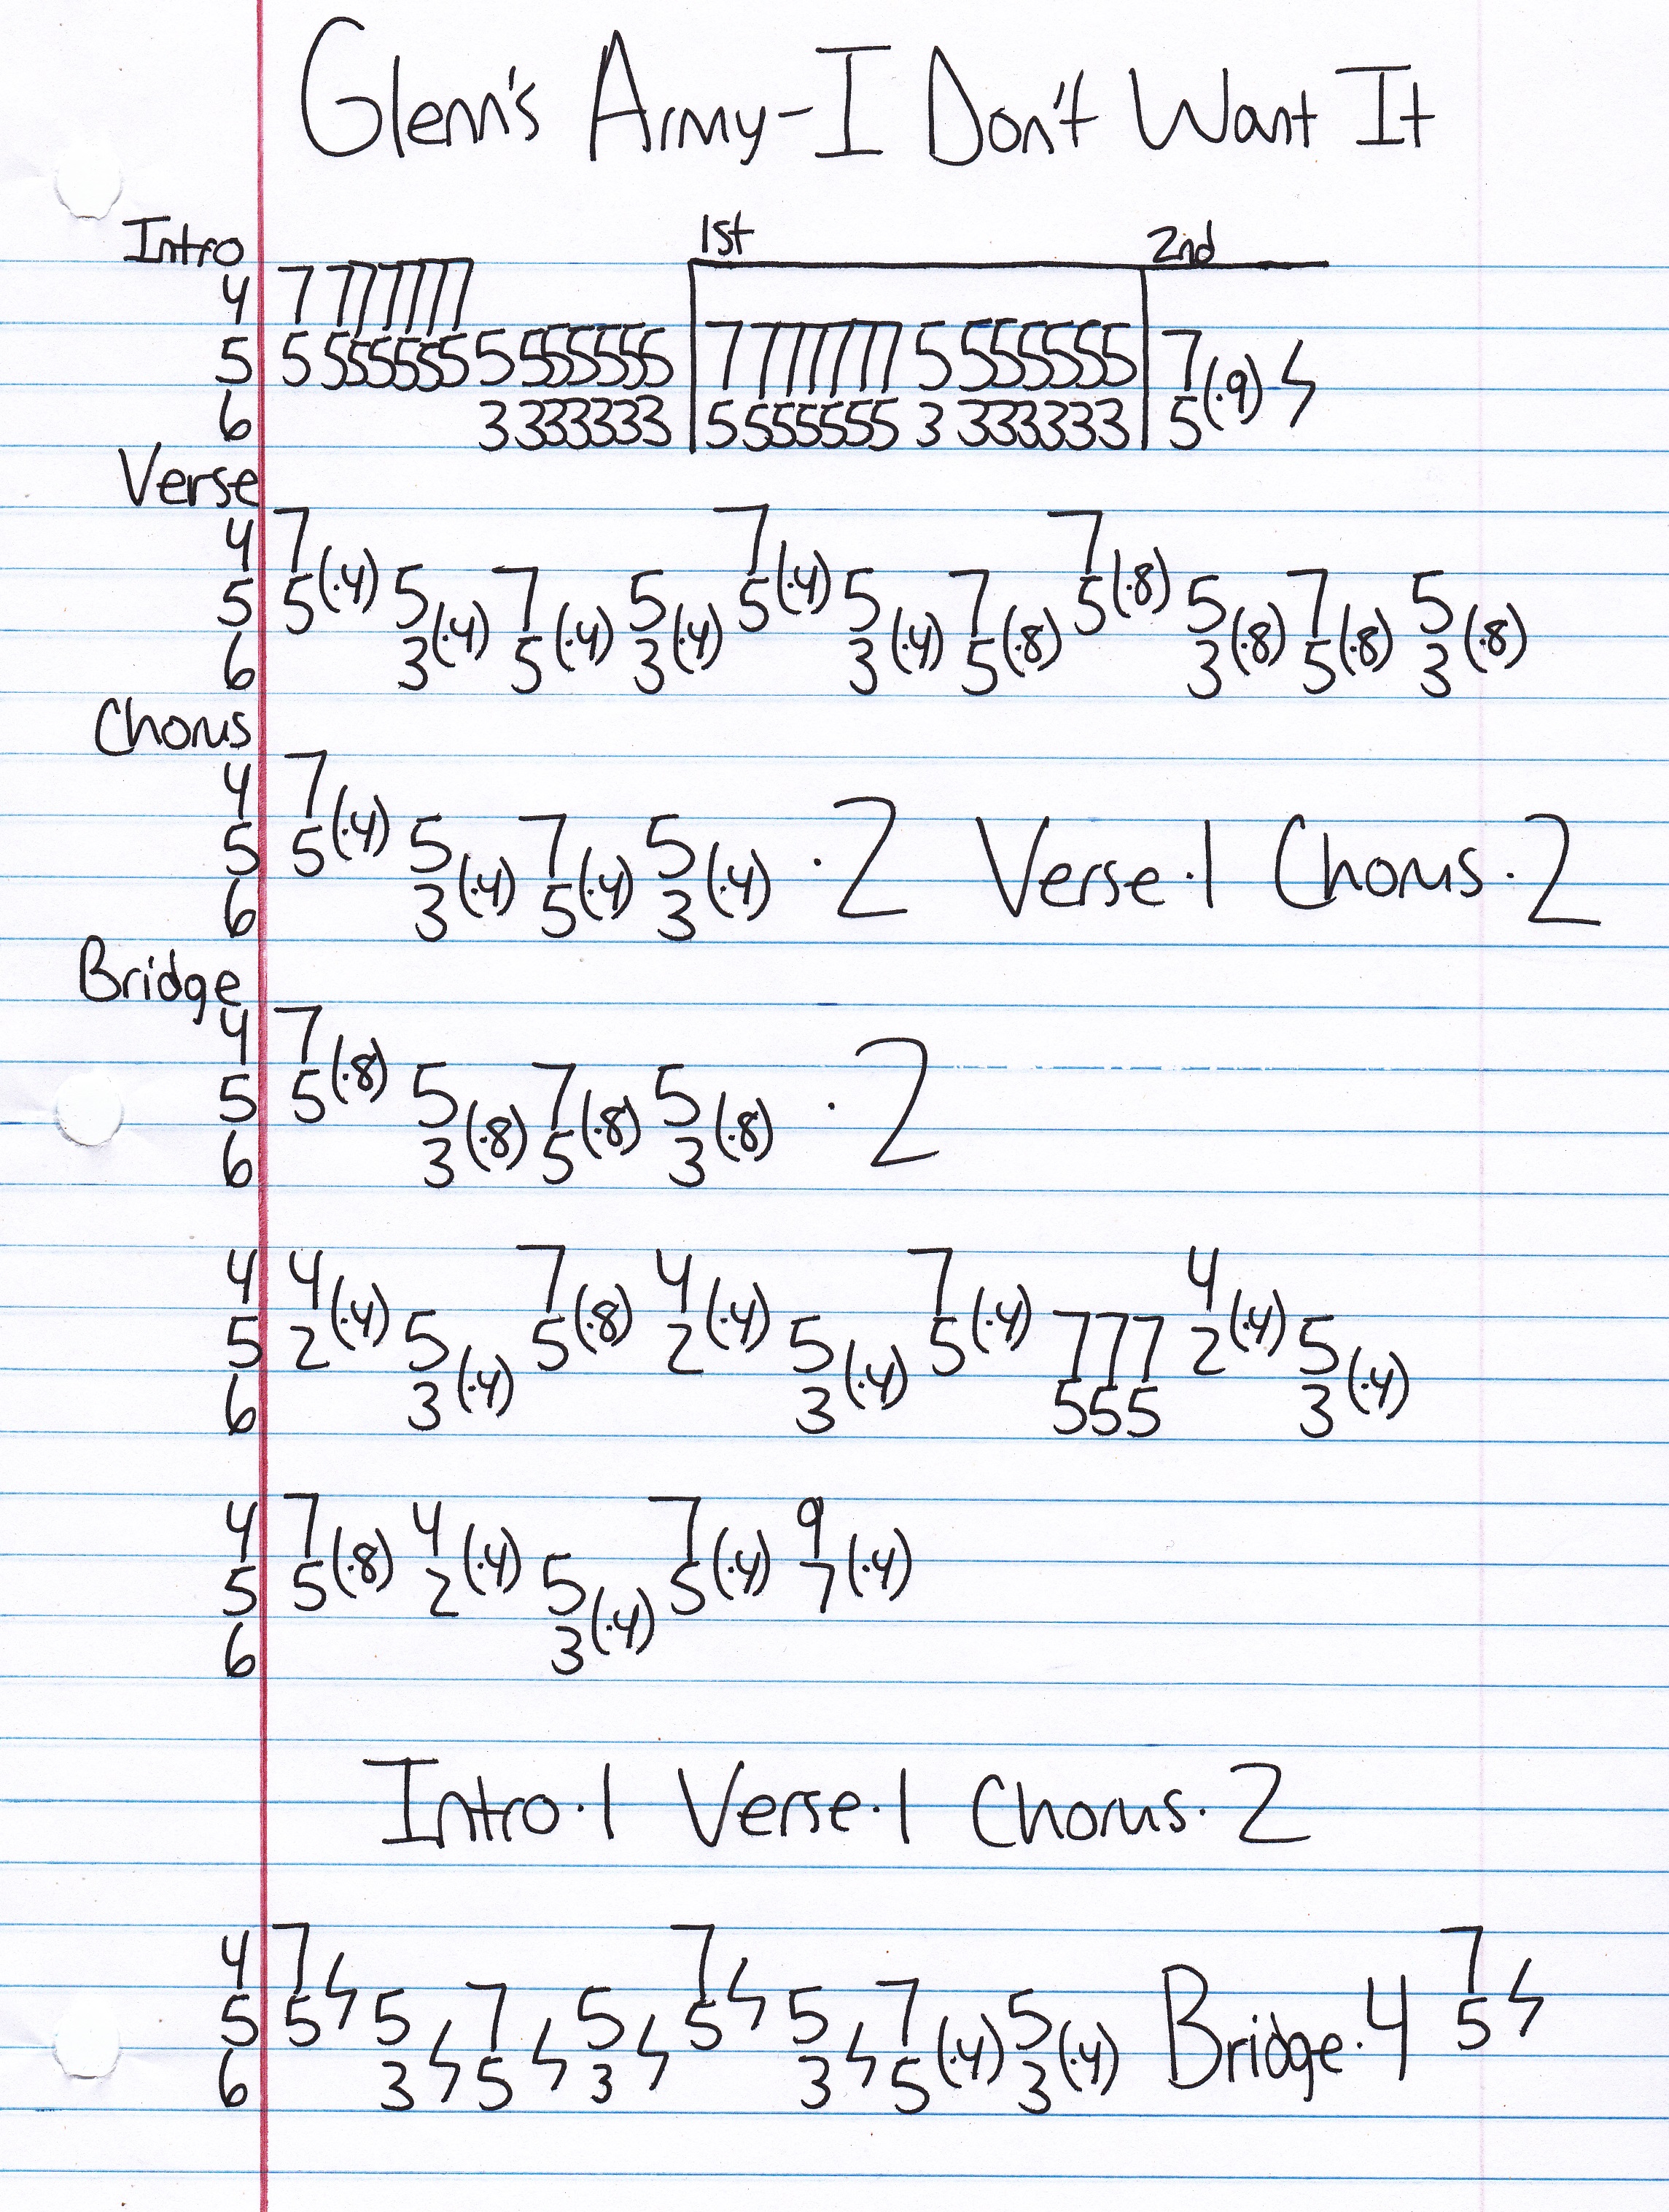 Glenn's Army-I Don't Want It
Intro 1st 2nd
4 7 777777
5 5 555555 5 555555 7 777777 5 555555 7
6 3 333333 5 555555 3 333333 5(·9) ϟ
Verse
4 7 7 7
5 5(·4) 5 7 5 5(·4) 5 7 5(·8) 5 7 5
6 3(·4) 5(·4) 3(·4) 3(·4) 5(·8) 3(·8) 5(·8) 3(·8)
Chorus
4 7
5 5(·4) 5 7 5 ·2 Verse·1 Chorus·2
6 3(·4) 5(·4) 3(·4)
Bridge
4 7
5 5(·8) 5 7 5 ·2
6 3(·8) 5(·8) 3(·8)
4 4 7 4 7 4
5 2(·4) 5 5(·8) 2(·4) 5 5(·4) 777 2(·4) 5
6 3(·4) 3(·4) 555 3(·4)
4 7 4 7 9
5 5(·8) 2(·4) 5 5(·4) 7(·4)
6 3(·4)
Intro·1 Verse·1 Chorus·2
4 7 7 7
5 5ϟ 5 7 5 5ϟ 5 7 5 Bridge·4 5ϟ
6 3ϟ 5ϟ 3ϟ 3ϟ 5(·4) 3(·4)